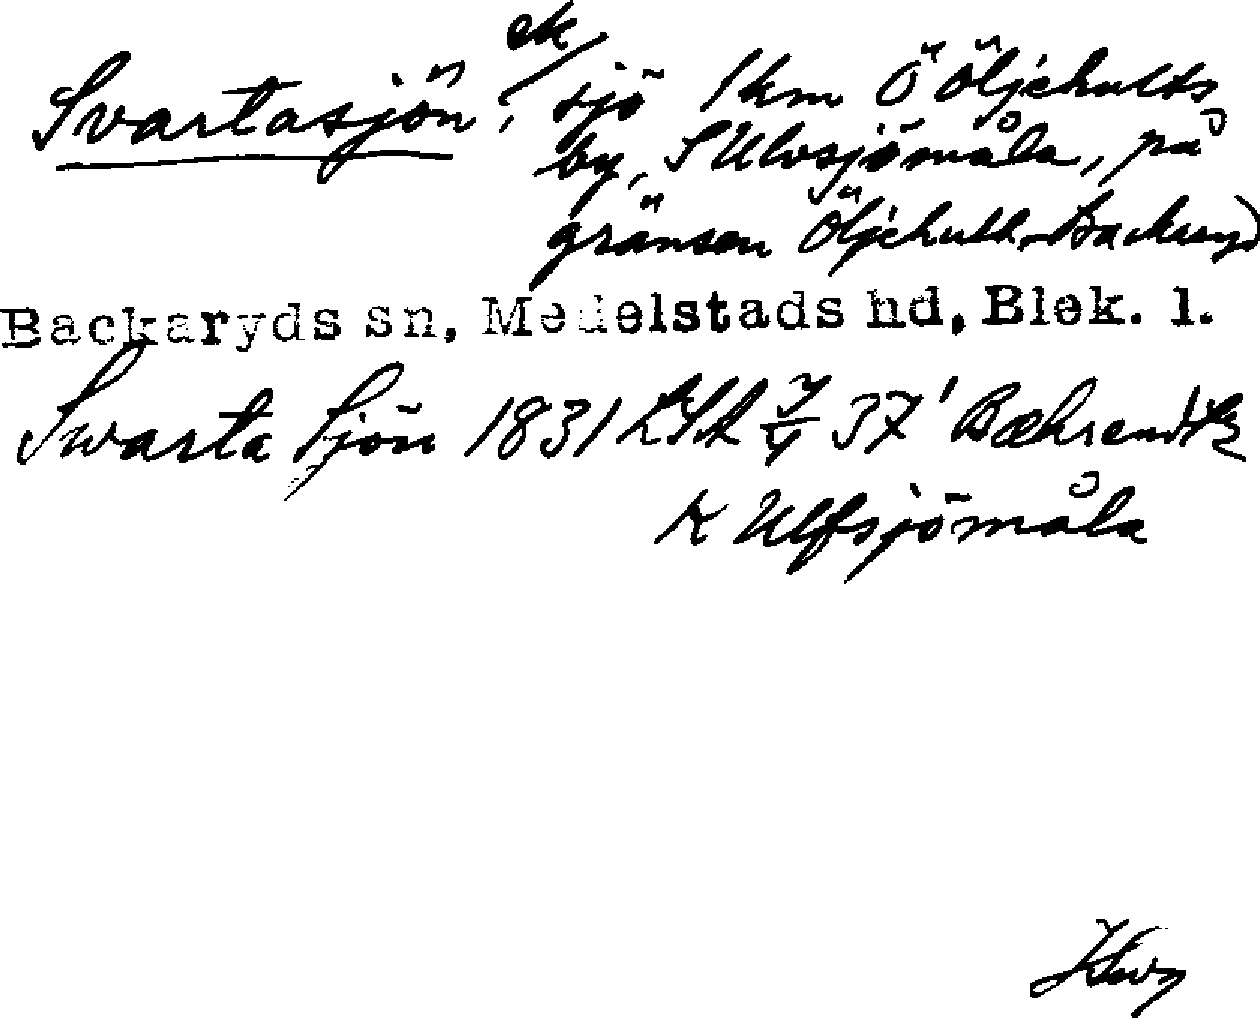 Svartasjön, ek/sjö 1 km Ö Öljehults
by, S Ulvsjömåla, på
gränsen Öljehult-Backaryd
Backaryds sn, Medelstads hd, Blek. l.
Swarta Sjön 1831 LSA 37' Bæhrendtz
K Ulfsjömåla